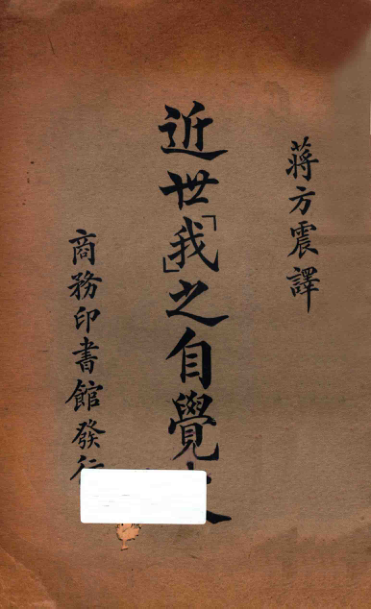 蔣方震譯
近世「我」之自覺
商務印書館發行